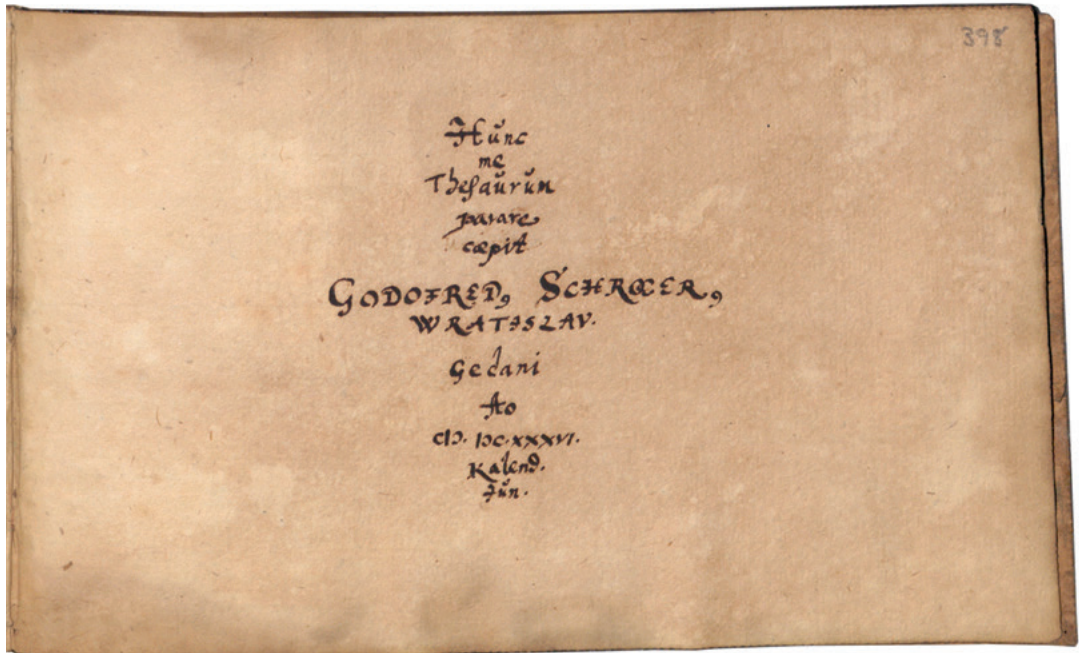 398
Hunc
me
Thesaurum
parare
cæpit
GODOFRED, SCHRŒER,
WRATISLAV.
Gedani
Ao
CIↃ. IↃC.XXXVI.
Kalend.
Jun.